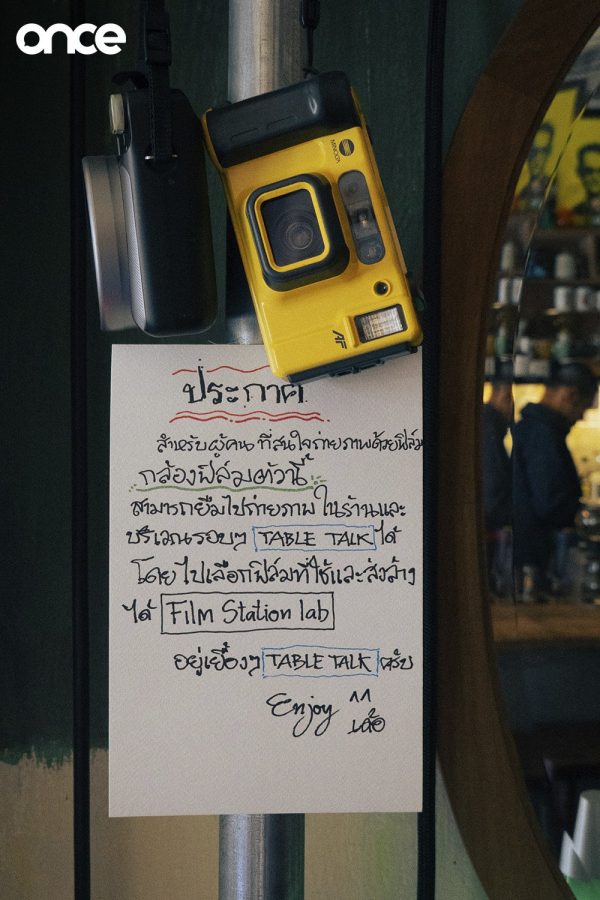 once
MINOLTA
AF
ประกาศ
สำหรับผู้คน ที่สนใจถ่ายภาพด้วยฟิล์ม
กล้องฟิล์มตัวนี้
สามารถยืมไปถ่ายภาพ ในร้านและ
บริเวณรอบๆ TABLE TALK ได้
โดยไปเลือกฟิล์มที่ใช้และส่งล้าง
ได้ Film Station lab
อยู่เยื้องๆ TABLE TALK ครับ
Enjoy ^^
เด้อ